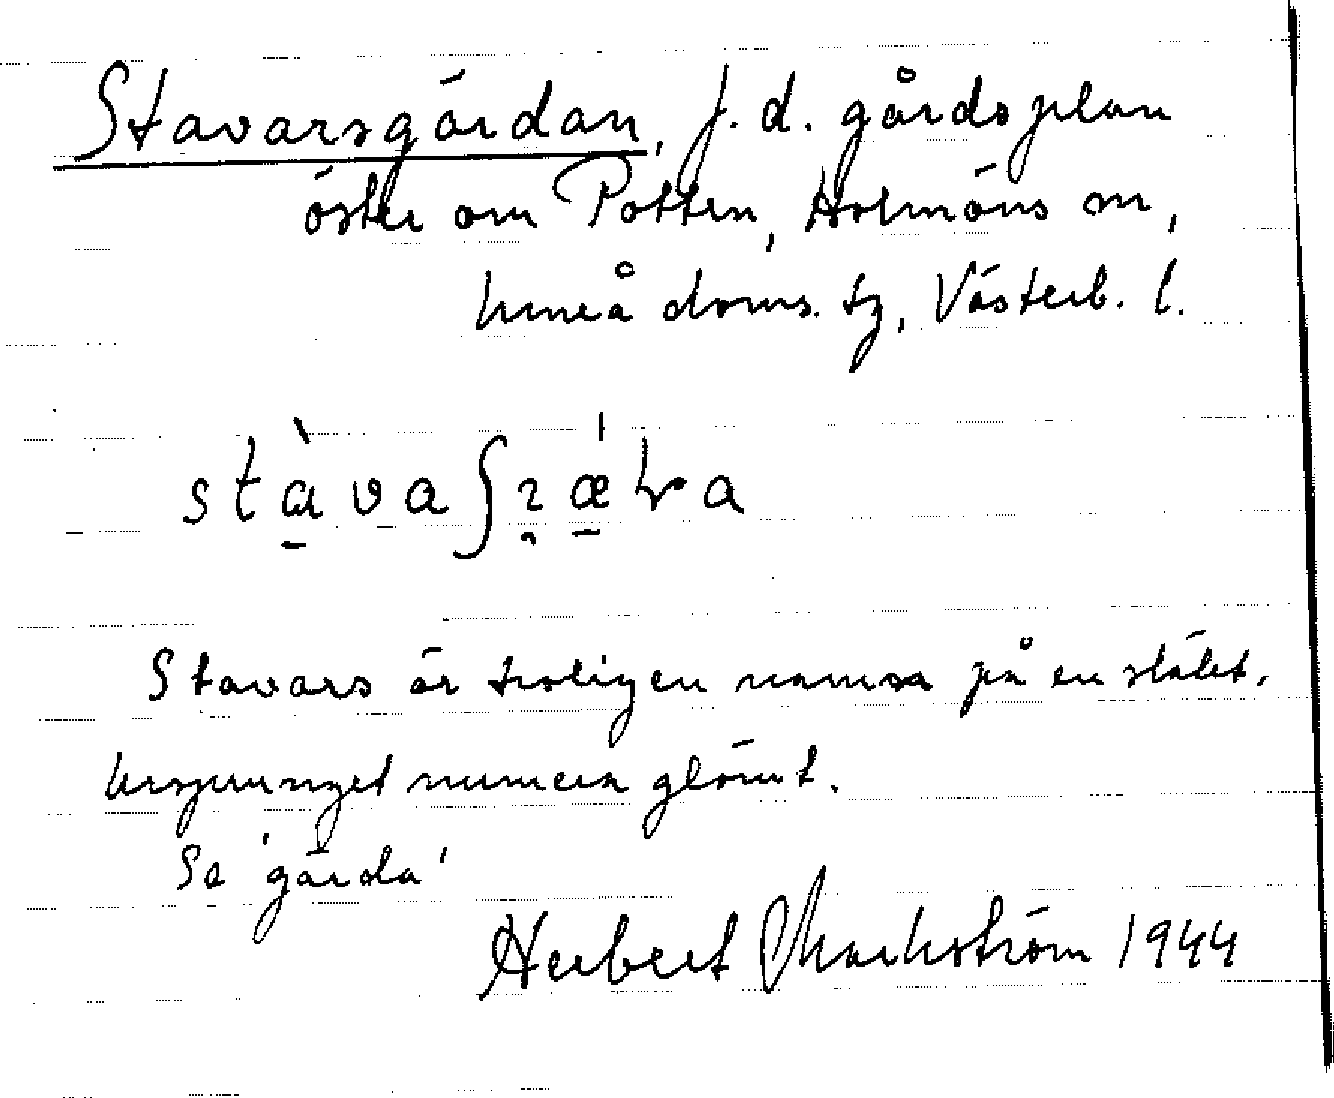 Stavarsgärdan, f. d. gårdsplan
öster om Potten, Holmöns sn,
Umeå doms. tg, Västerb. l.
Stavars är troligen namn på en släkt.
Ursprunget numera glömt.
Se 'gärda'
Herbert Markström 1944